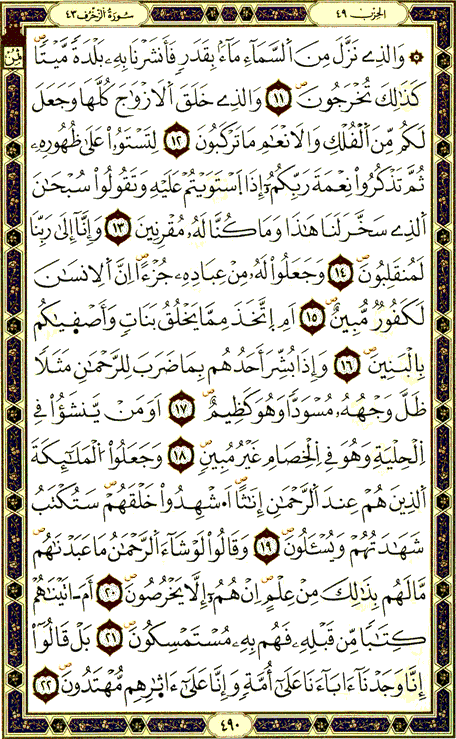 الحِزب ٤٩
سُورَةُ الزُّخْرُف ٤٣
ثُمُن
۞ وَالذِے نَزَّلَ مِنَ اَ۬لسَّمَآءِ مَآءَۢ بِقَدَرٖ فَأَنشَرْنَا بِهِۦ بَلْدَةٗ مَّيْتاٗ
كَذَٰلِكَ تُخْرَجُونَ ١١ وَالذِے خَلَقَ اَ۬لَازْوَٰجَ كُلَّهَا وَجَعَلَ
لَكُم مِّنَ اَ۬لْفُلْكِ وَالَانْعَٰمِ مَا تَرْكَبُونَ ١٢ لِتَسْتَوُۥاْ عَلَىٰ ظُهُورِهِۦ
ثُمَّ تَذْكُرُواْ نِعْمَةَ رَبِّكُمُۥٓ إِذَا اَ۪سْتَوَيْتُمْ عَلَيْهِ وَتَقُولُواْ سُبْحَٰنَ
اَ۬لذِے سَخَّرَ لَنَا هَٰذَا وَمَا كُنَّا لَهُۥ مُقْرِنِينَ ١٣ وَإِنَّآ إِلَىٰ رَبِّنَا
لَمُنقَلِبُونَ ١٤ وَجَعَلُواْ لَهُۥ مِنْ عِبَادِهِۦ جُزْءاًۖ اِنَّ اَ۬لِانسَٰنَ
لَكَفُورٞ مُّبِينٌ ١٥ اَمِ اِ۪تَّخَذَ مِمَّا يَخْلُقُ بَنَاتٖ وَأَصْفَيٰكُم
بِالْبَنِينَ ١٦ وَإِذَا بُشِّرَ أَحَدُهُم بِمَا ضَرَبَ لِلرَّحْمَٰنِ مَثَلاٗ
ظَلَّ وَجْهُهُۥ مُسْوَدّاٗ وَهُوَ كَظِيمٌ ١٧ اَوَمَنْ يَّنشَؤُاْ فِے
اِ۬لْحِلْيَةِ وَهُوَ فِے اِ۬لْخِصَامِ غَيْرُ مُبِينٖ ١٨ وَجَعَلُواْ اُ۬لْمَلَٰٓئِكَةَ
اَ۬لذِينَ هُمْ عِندَ اَ۬لرَّحْمَٰنِ إِنَٰثاًۖ اَ۟شْهِدُواْ خَلْقَهُمْ سَتُكْتَبُ
شَهَٰدَتُهُمْ وَيُسْـَٔلُونَ ١٩ وَقَالُواْ لَوْ شَآءَ اَ۬لرَّحْمَٰنُ مَا عَبَدْنَٰهُم
مَّا لَهُم بِذَٰلِكَ مِنْ عِلْمٍ اِنْ هُمُۥٓ إِلَّا يَخْرُصُونَ ٢٠ أَمَ اٰتَيْنَٰهُمْ
كِتَٰباٗ مِّن قَبْلِهِۦ فَهُم بِهِۦ مُسْتَمْسِكُونَ ٢١ بَلْ قَالُوٓاْ
إِنَّا وَجَدْنَآ ءَابَآءَنَا عَلَىٰٓ أُمَّةٖ وَإِنَّا عَلَىٰٓ ءَاثٰ۪رِهِم مُّهْتَدُونَ ٢٢
٤٩٠